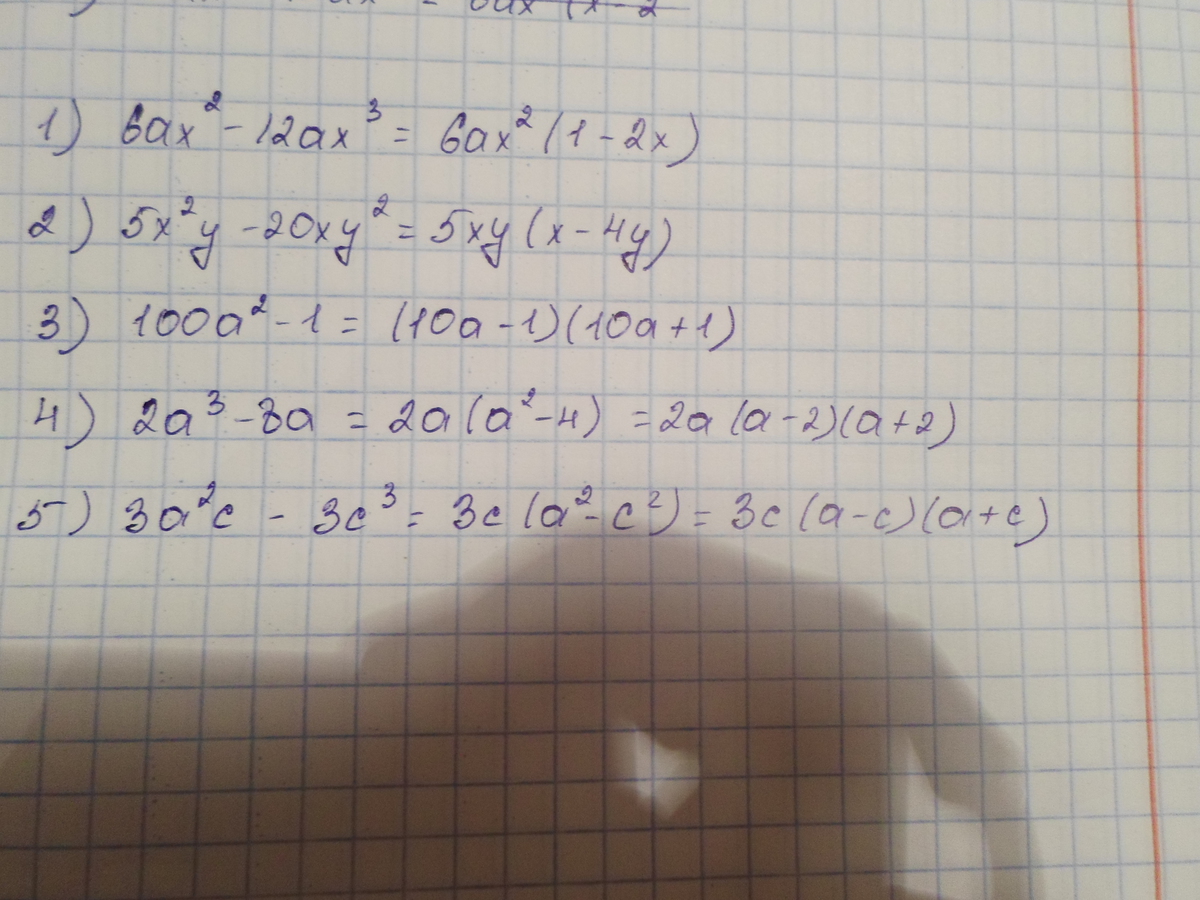 1) 6ax² - 12ax³ = 6ax² (1 - 2x)
2) 5x²y - 20xy² = 5xy (x - 4y)
3) 100a² - 1 = (10a - 1)(10a + 1)
4) 2a³ - 8a = 2a (a² - 4) = 2a (a - 2)(a + 2)
5) 3a²c - 3c³ = 3c (a² - c²) = 3c (a - c)(a + c)